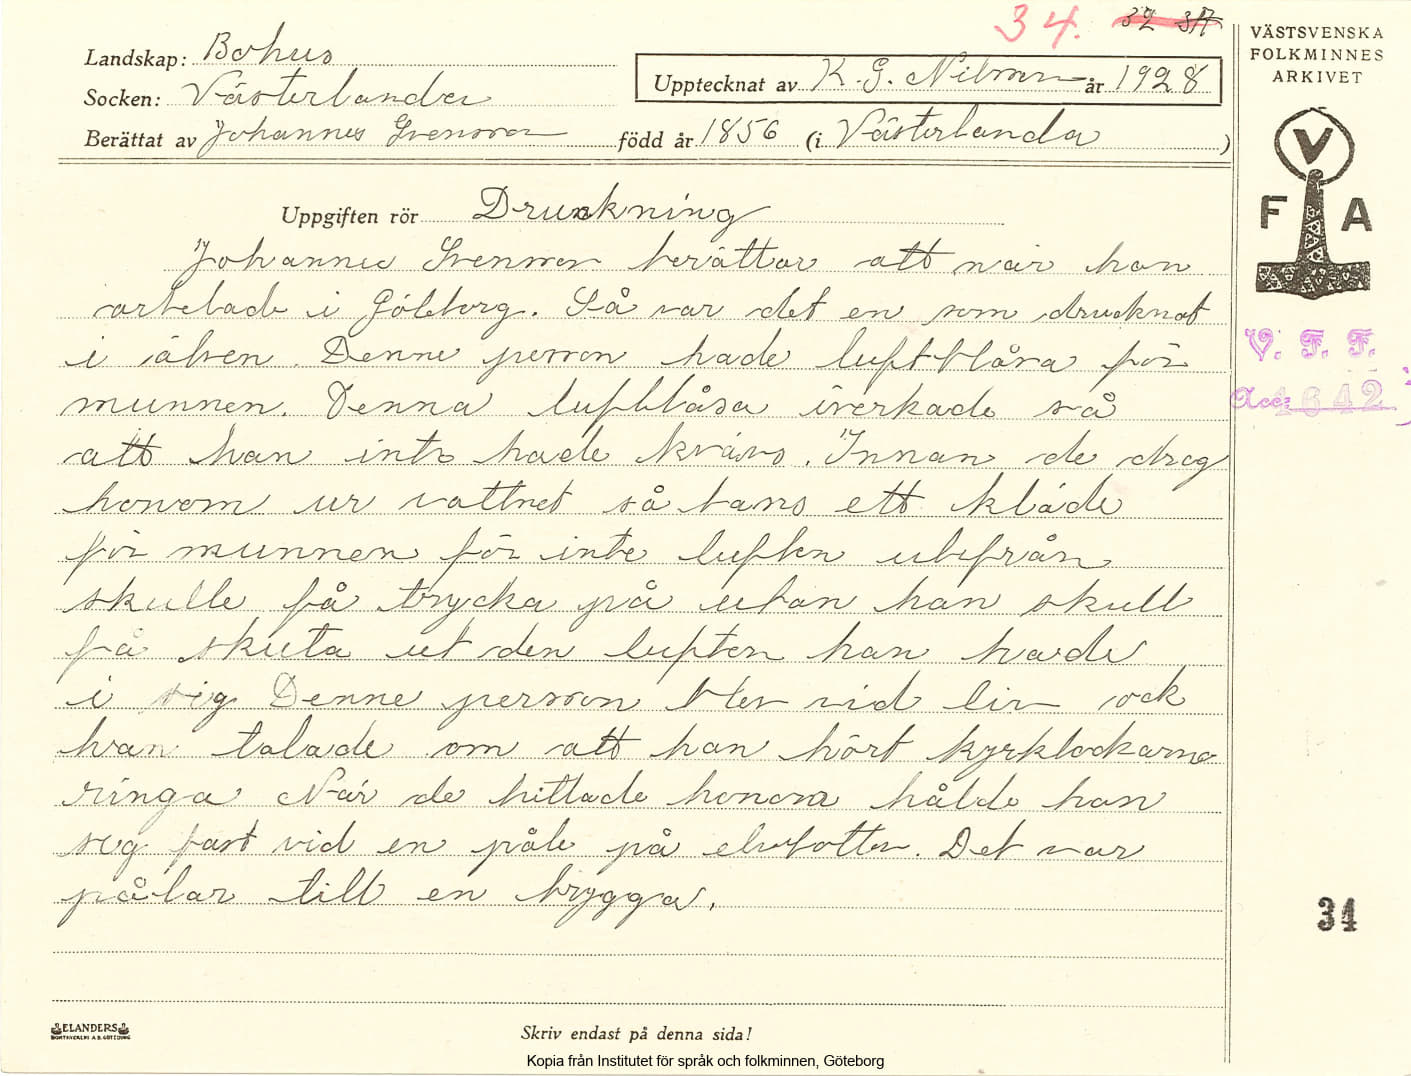 34. 32 37
Landskap: Bohus
Socken: Västerlanda
Upptecknat av K. G. Nilsson år 1928
Berättat av Johannes Svensson född år 1856 (i Västerlanda)
Uppgiften rör Drunkning
Johannes Svensson berättar att när han
arbetade i Göteborg. Så var det en som drucknat
i älven. Denne person hade luftblåsa för
munnen. Denna luftblåsa iverkade så
att han inte hade kvävs. Innan de drog
honom ur vattnet så tans ett kläde
för munnen för inte luften utifrån
skulle få trycka på utan han skull
få skuta ut den luften han hade
i sig Denne person blev vid liv ock
han talade om att han hört kyrklockarna
ringa När de hittade honom hålde han
sig fast vid en påle på elvbotten. Det var
pålar till en brygga.
ELANDERS
Skriv endast på denna sida!
Kopia från Institutet för språk och folkminnen, Göteborg
VÄSTSVENSKA
FOLKMINNES
ARKIVET
V
F A
V. F. F.
Acc: 1642
34